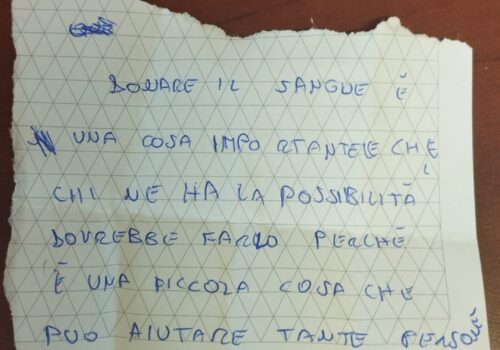 DONARE IL SANGUE È
UNA COSA IMPORTANTELE CHE
CHI NE HA LA POSSIBILITÀ
DOVREBBE FARLO PERCHÈ
È UNA PICCOLA COSA CHE
PUO AIUTARE TANTE PERSONE